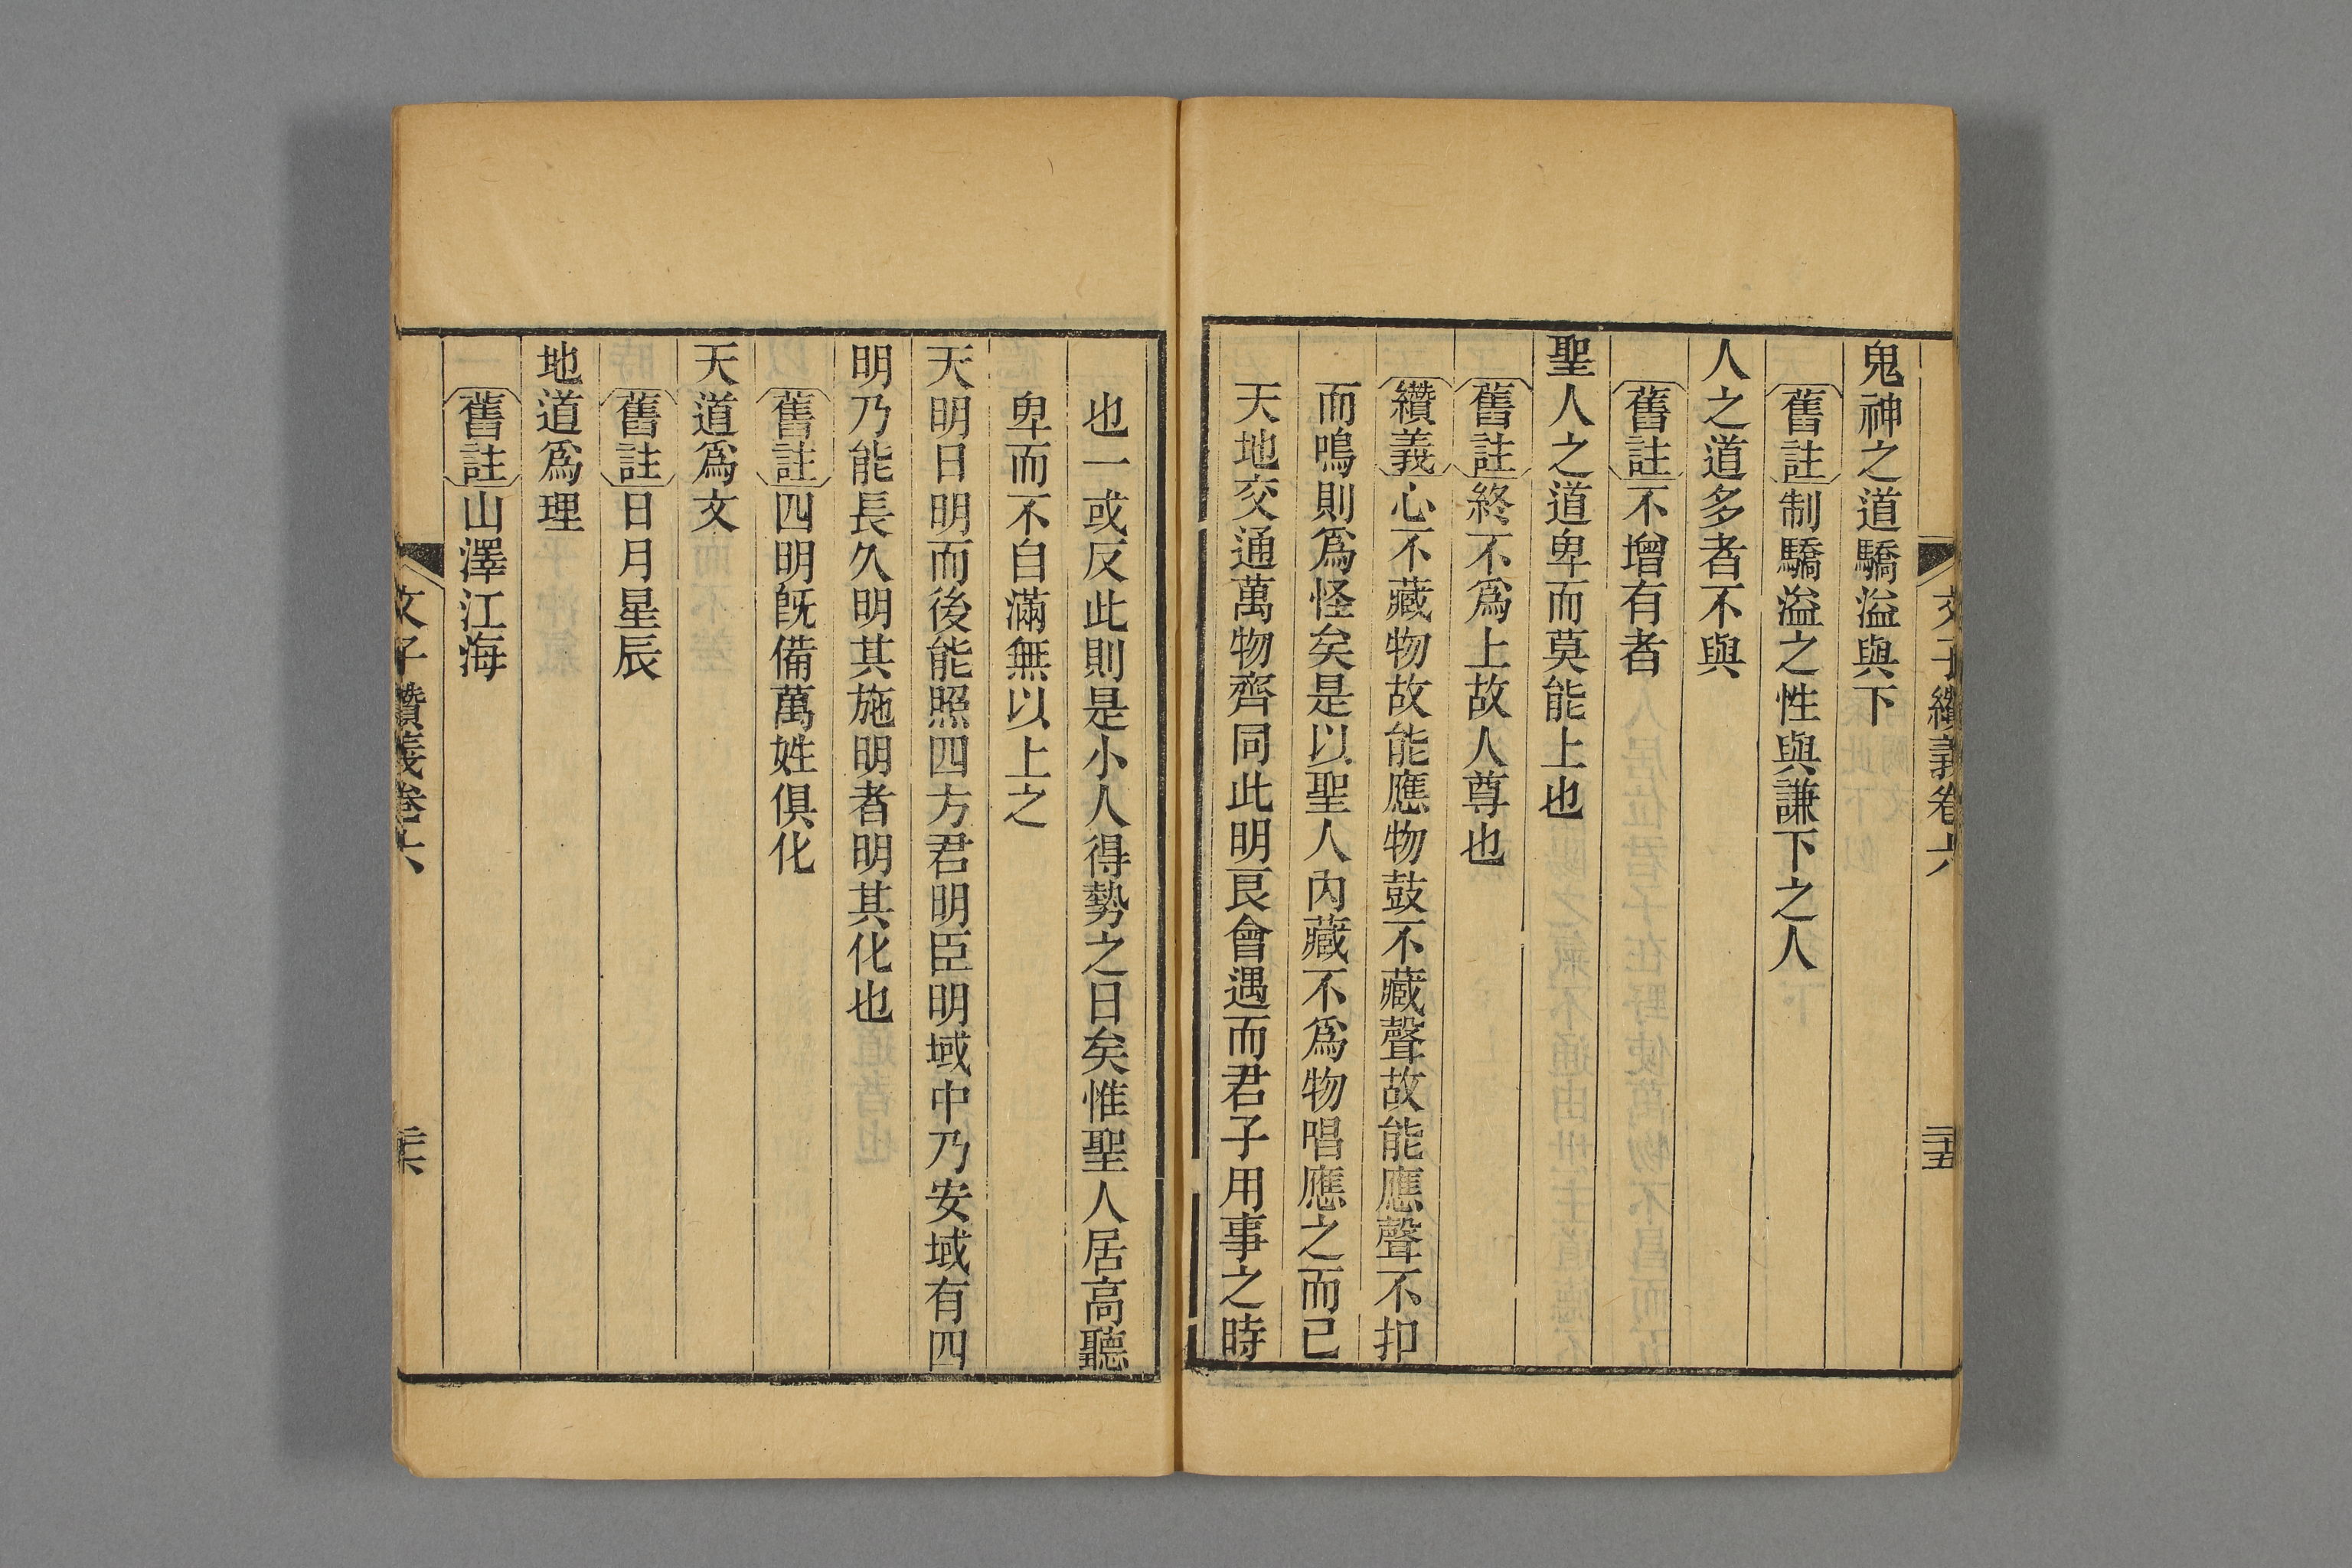 文子纘義卷六
二十五
鬼神之道驕溢與下
舊註制驕溢之性與謙下之人
人之道多者不與
舊註不增有者
聖人之道卑而莫能上也
舊註終不爲上故人尊也
纘義心不藏物故能應物鼓不藏聲故能應聲不扣
而鳴則爲怪矣是以聖人內藏不爲物唱應之而已
天地交通萬物齊同此明良會遇而君子用事之時
也一或反此則是小人得勢之日矣惟聖人居高聽
卑而不自滿無以上之
天明日明而後能照四方君明臣明域中乃安域有四
明乃能長久明其施明者明其化也
舊註四明旣備萬姓俱化
天道爲文
舊註日月星辰
地道爲理
舊註山澤江海
文子纘義卷六
二十六